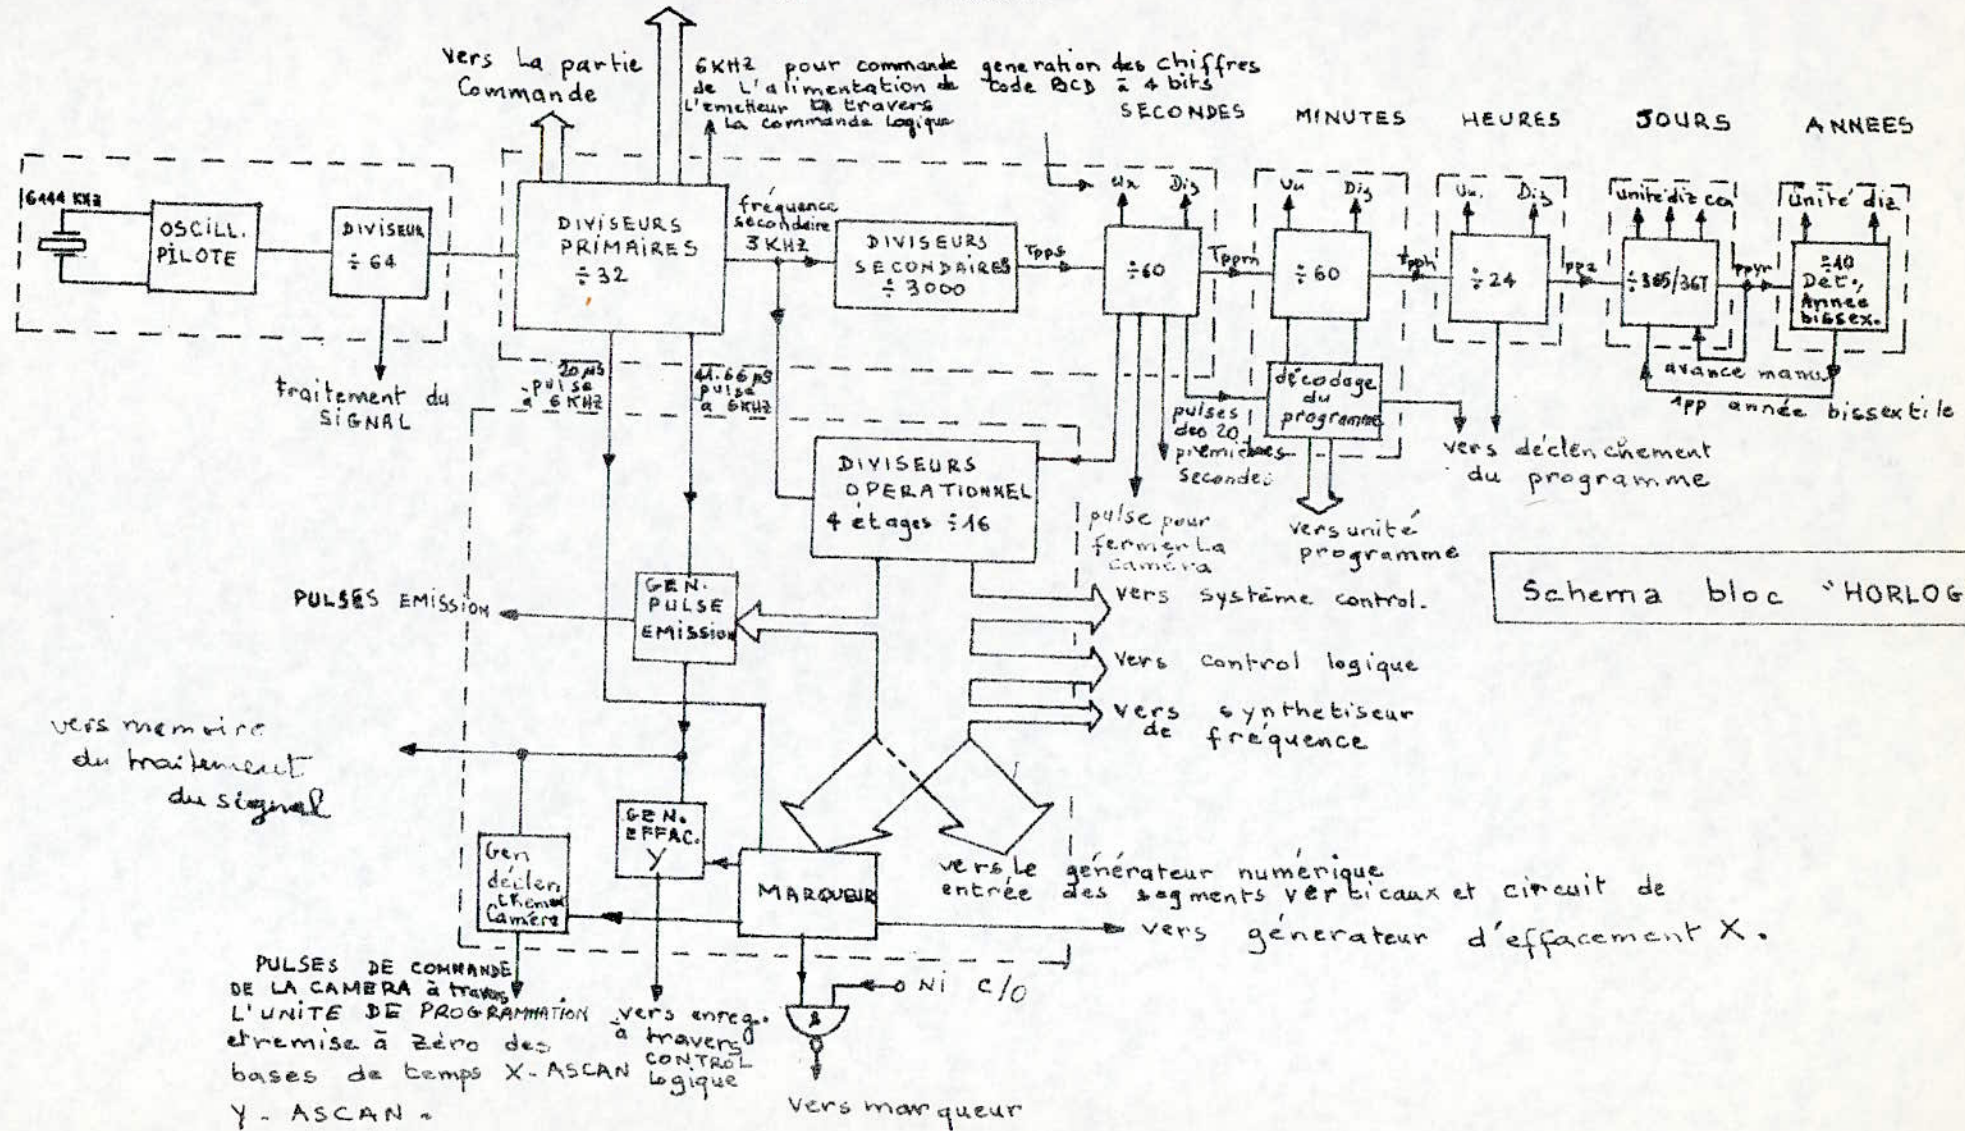 vers la partie
Commande
6KHZ pour commande
de L'alimentation de
L'emetteur à travers
La commande logique
generation des chiffres
code BCD à 4 bits
SECONDES
MINUTES
HEURES
JOURS
ANNEES
6144 KHz
OSCILL.
PILOTE
DIVISEUR
÷ 64
DIVISEURS
PRIMAIRES
÷ 32
fréquence
secondaire
3 KHZ
DIVISEURS
SECONDAIRES
÷ 3000
1pps
Un Diz
÷60
1ppm
Un Diz
÷60
1pph
Un. Diz
÷24
unité diz cen
÷365/367
ppyr
Unité diz
÷10
Det.,
Année
bissex.
avance manu
1pp année bissextile
traitement du
SIGNAL
20 µs
pulse
à 6 KHZ
41.66 µs
pulse
à 6KHZ
décodage
du
programme
pulses
des 20
premières
secondes
vers déclenchement
du programme
DIVISEURS
OPERATIONNEL
4 étages ÷16
pulse pour
fermer La
caméra
vers unité
programme
Schema bloc "HORLOG
PULSES EMISSION
GEN.
PULSE
EMISSION
vers système control.
vers control logique
vers synthetiseur
de fréquence
vers memoire
du traitement
du signal
GEN.
EFFAC.
Y
Gen
déclen
chemen
Caméra
MARQUEUR
vers Le générateur numérique
entrée des segments verticaux et circuit de
vers génerateur d'effacement X.
Ni C/O
&
PULSES DE COMMANDE
DE LA CAMERA à travers
L'UNITE DE PROGRAMMATION
et remise à Zéro des
bases de temps X-ASCAN
Y-ASCAN -
vers enreg.
à travers
CONTROL
Logique
vers marqueur